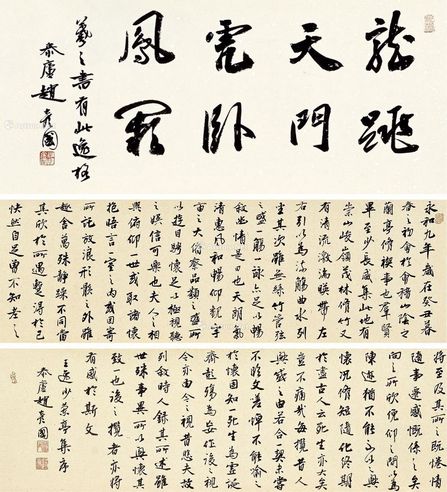 龍跳
天門
虎卧
鳳闕
羲之書有此逸格
泰廬趙彥國
永和九年歲在癸丑暮
春之初會于會稽山陰之
蘭亭脩禊事也羣賢
畢至少長咸集此地有
崇山峻嶺茂林脩竹又
有清流激湍暎帶左
右引以為流觴曲水列
坐其次雖無絲竹管弦
之盛一觴一詠亦足以暢
叙幽情是日也天朗氣
清惠風和暢仰觀宇
宙之大俯察品類之盛所
以遊目騁懷足以極視聽
之娛信可樂也夫人之相
與俯仰一世或取諸懷
抱晤言一室之內或因寄
所託放浪形骸之外雖
趣舍萬殊靜躁不同當
其欣於所遇暫得於己
怏然自足曾不知老之
將至及其所之既惓情
隨事遷感慨係之矣
向之所欣俛仰之間以為
陳迹猶不能不以之興
懷況脩短隨化終期
於盡古人云死生亦大矣
豈不痛哉每攬昔人
興感之由若合一契未甞
不臨文嗟悼不能喻之
於懷固知一死生為虛誕
齊彭殤為妄作後之視
今亦由今之視昔悲夫故
列敘時人錄其所述雖
世殊事異所以興懷其
致一也後之攬者亦將
有感於斯文
王逸少蘭亭集序
泰廬趙彥國